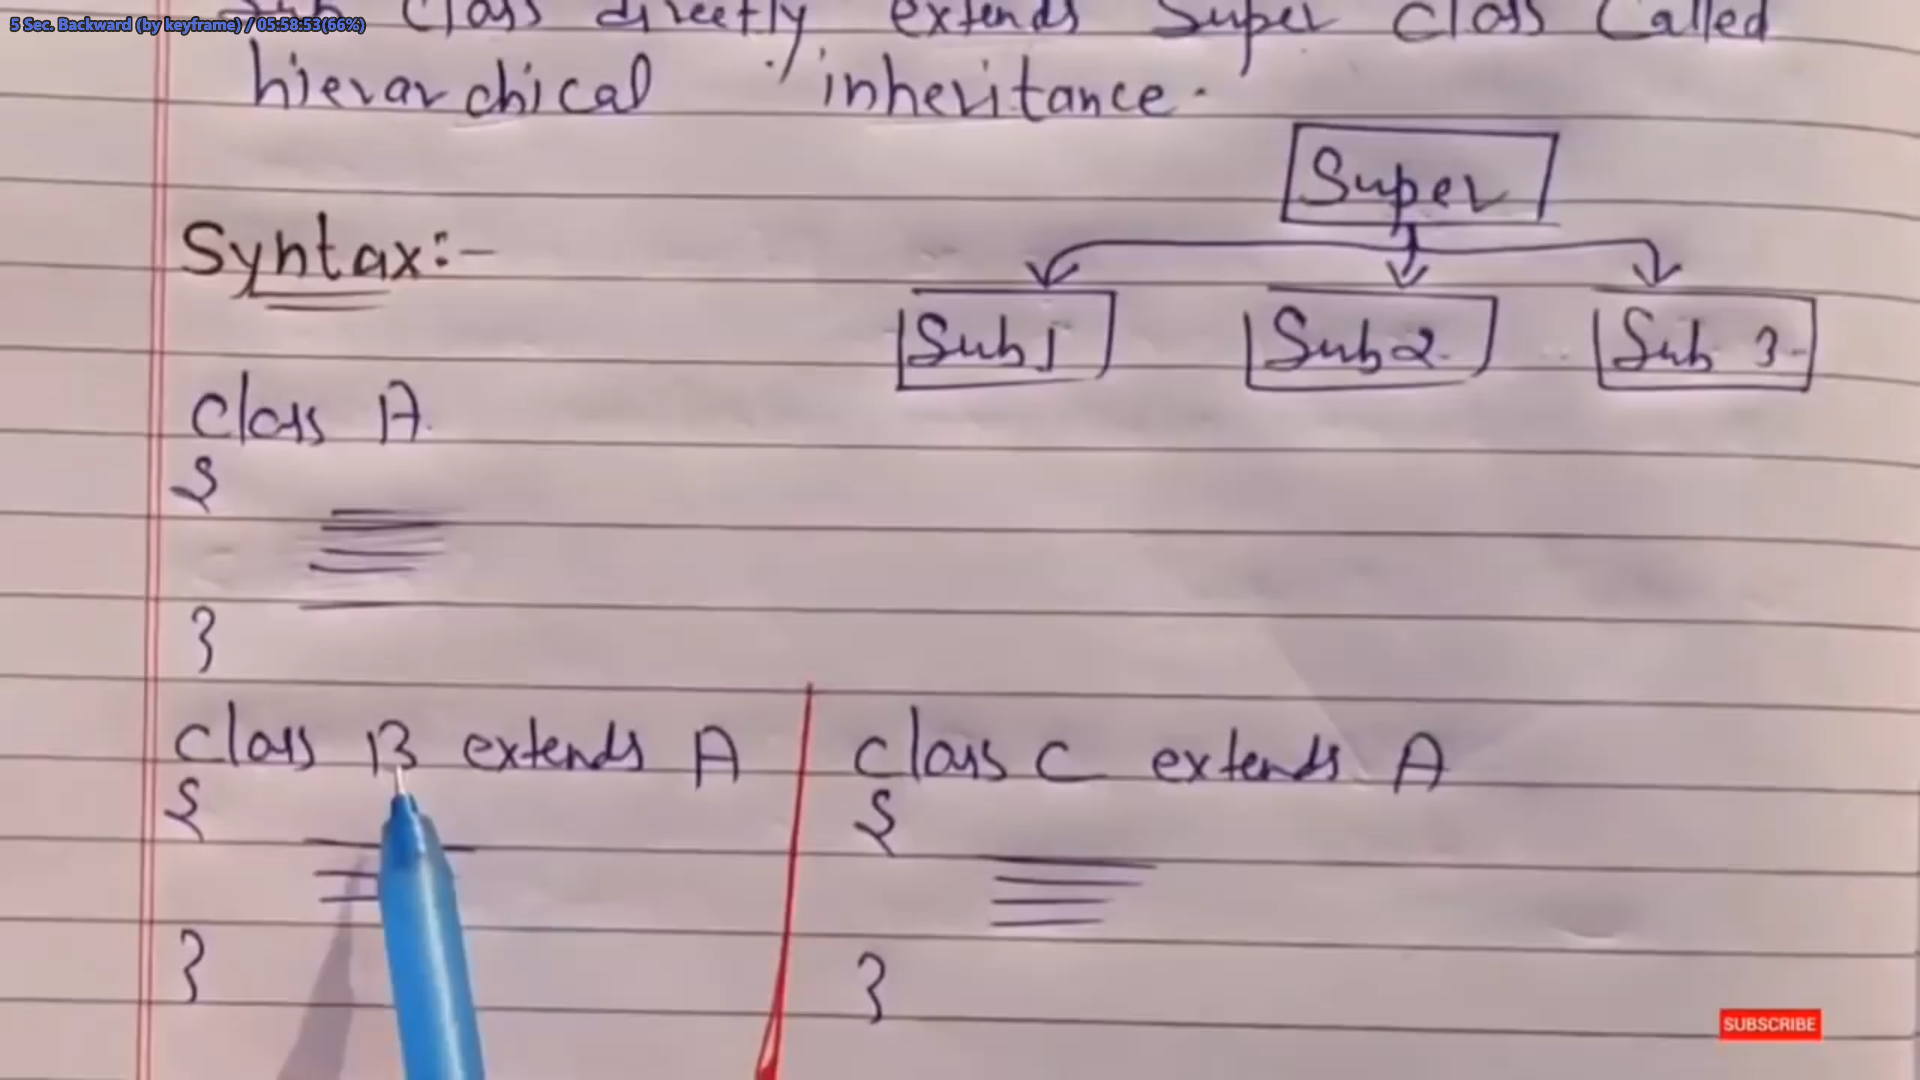 5 Sec. Backward (by keyframe) / 05:58:53(66%)
Sub Class directly extends Super Class Called
hierarchical inheritance.
Super
Syntax:-
Sub1 Sub2 Sub 3
Class A
{
}
Class B extends A
{
}
Class C extends A
{
}
SUBSCRIBE